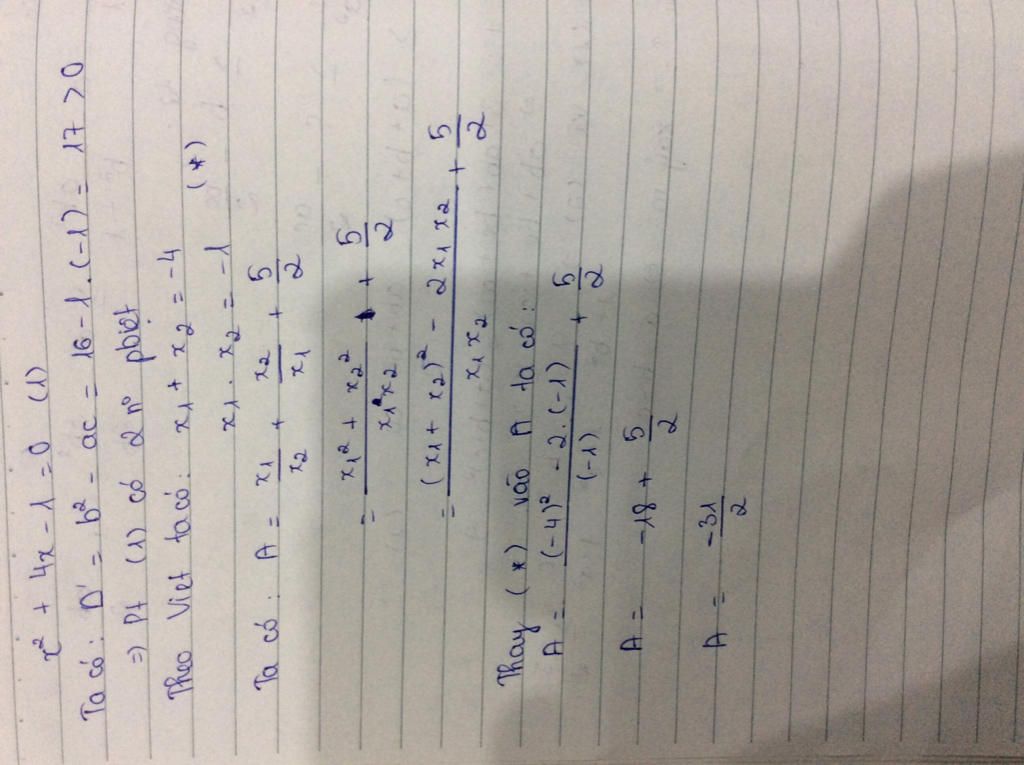 x² + 4x - 1 = 0 (1)
Ta có: Δ' = b² - ac = 16 - 1 . (-1) = 17 > 0
=> Pt (1) có 2 n° pbiệt
Theo Viet ta có: x1 + x2 = -4
x1 . x2 = -1 (*)
Ta có: A = x1/x2 + x2/x1 + 5/2
= (x1² + x2²)/(x1 x2) + 5/2
= ((x1 + x2)² - 2x1 x2)/(x1 x2) + 5/2
Thay (*) vào A ta có:
A = ((-4)² - 2.(-1))/(-1) + 5/2
A = -18 + 5/2
A = -31/2